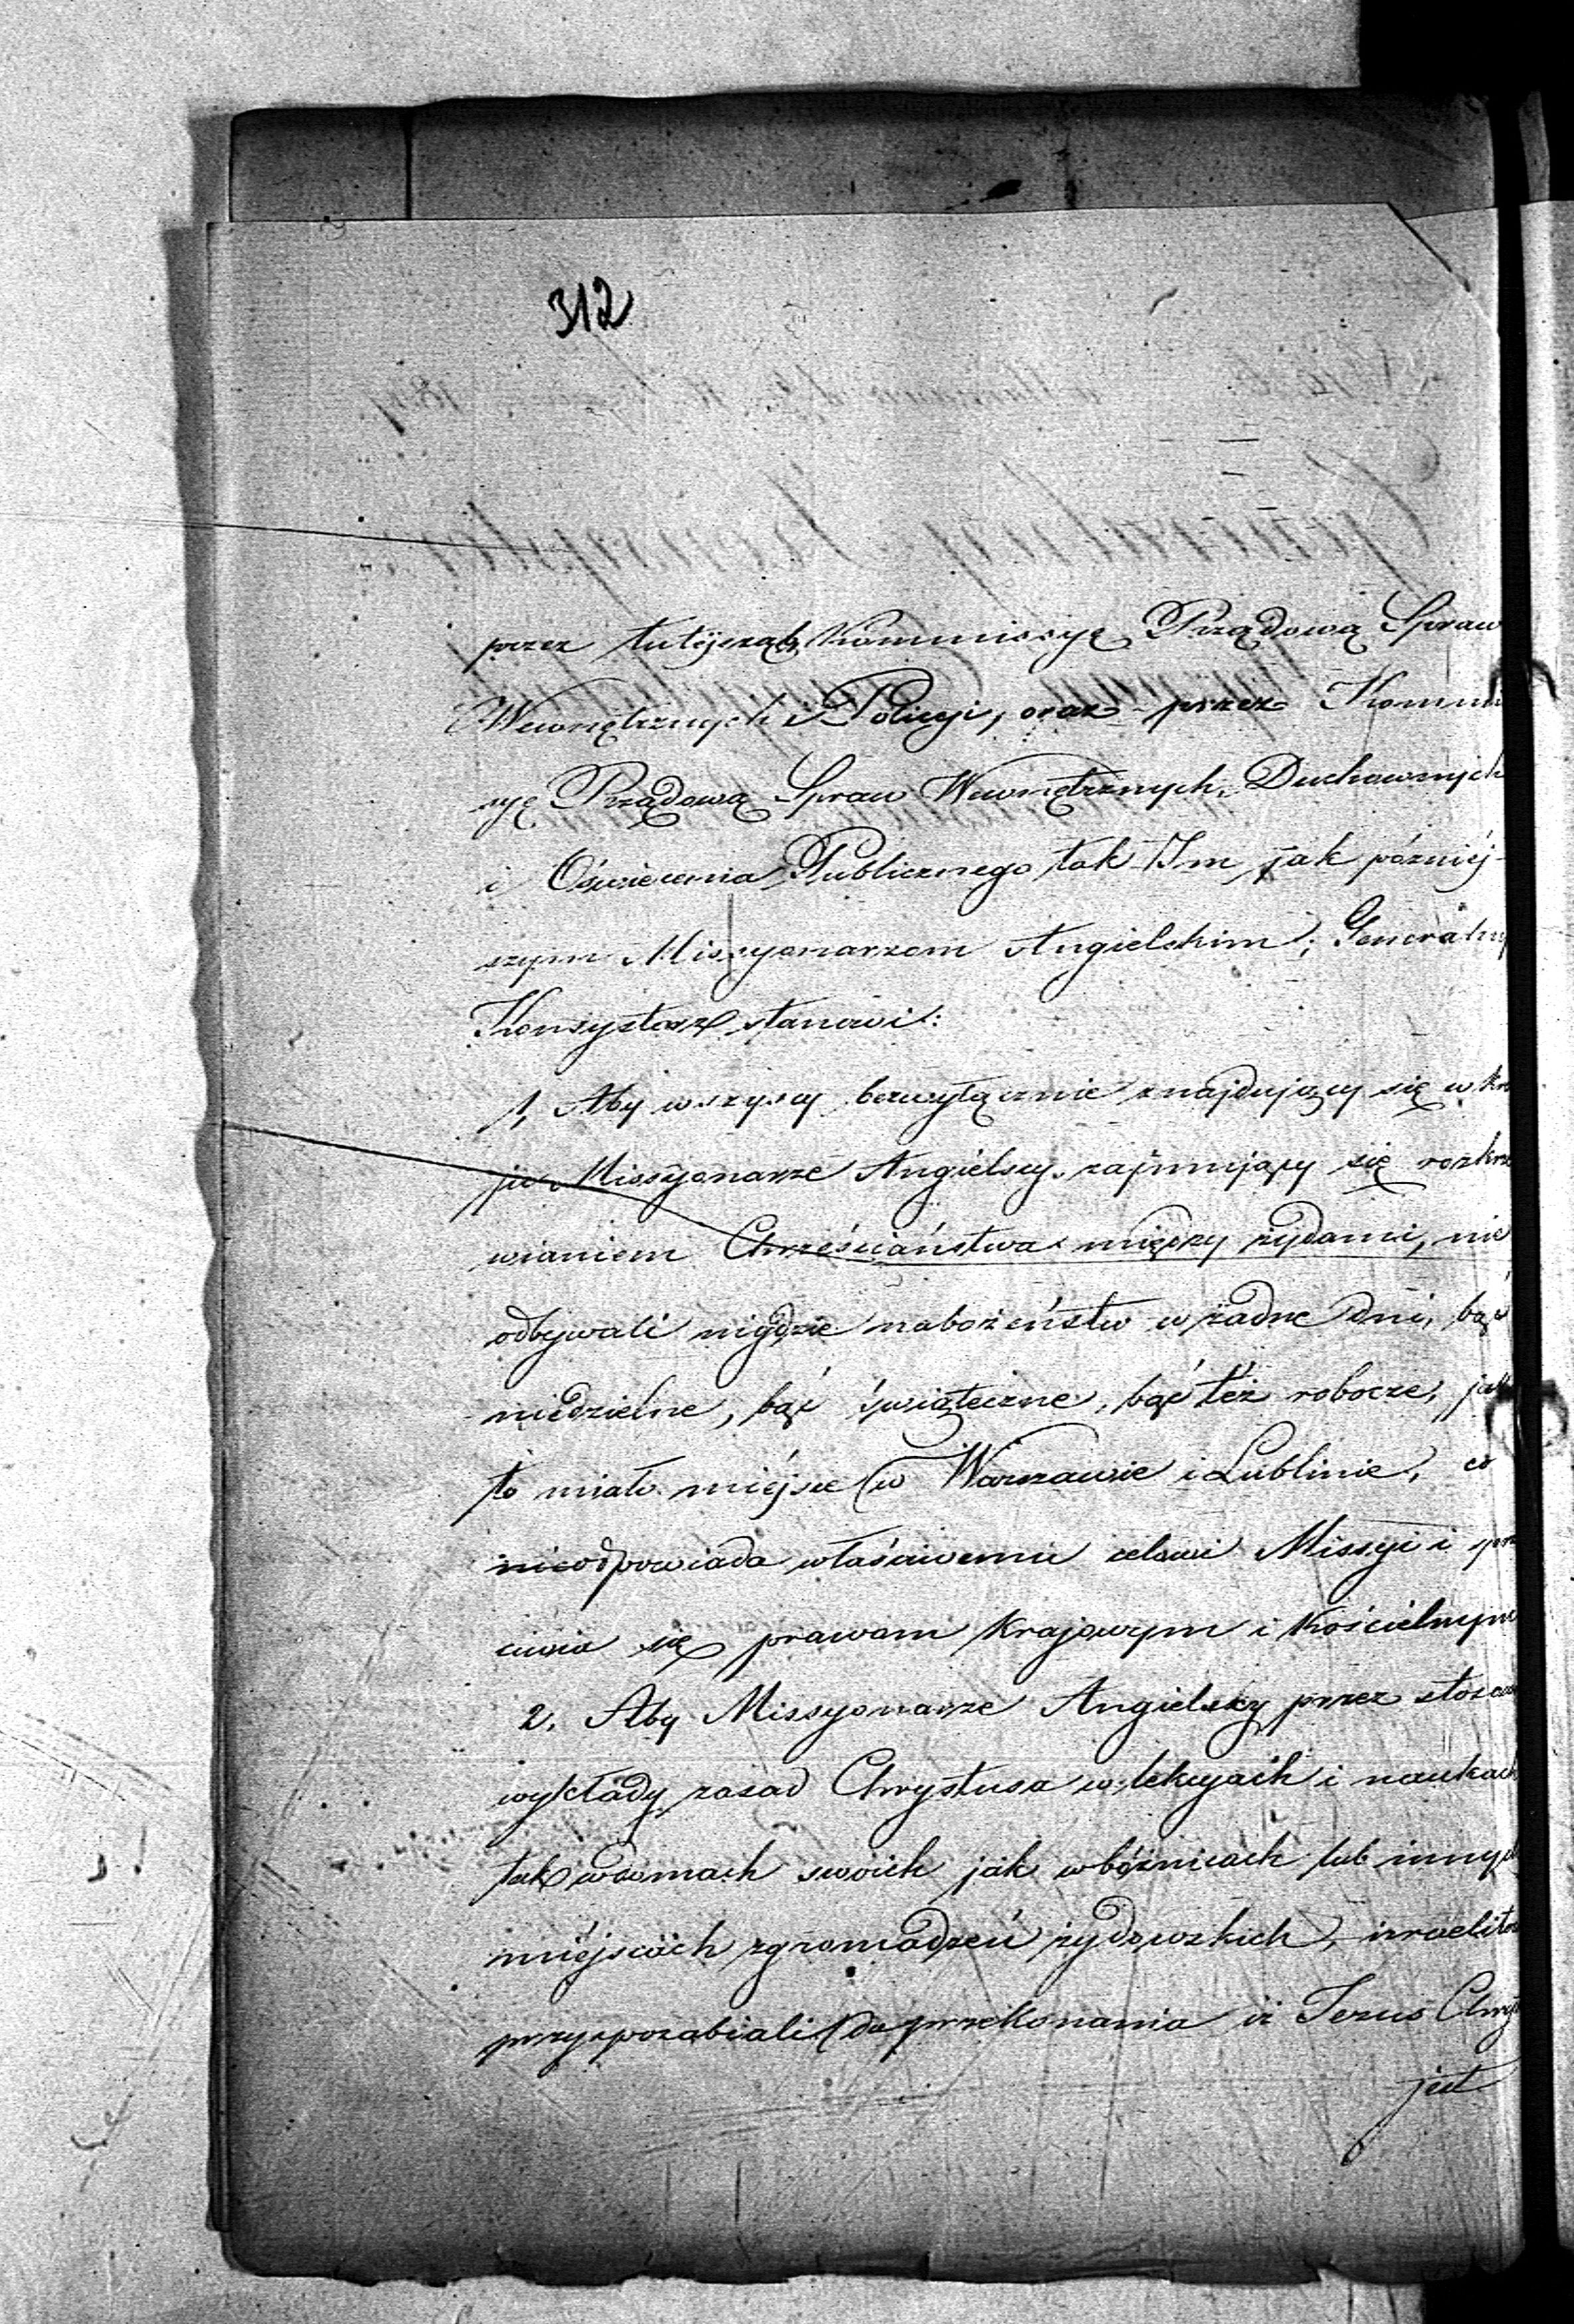 312
przez tutéjszą Kommissyę Rządową Spraw
Wewnętrznych i Policyi, oraz przez Kommi
syę Rządową Spraw Wewnętrznych, Duchownych
i Oświecenia Publicznego tak Im jak późniéj-
szym Missyonarzom Angielskim; Generalny
Konsystorz stanowi:
1, Aby wszyscy bezwyłącznie znajdujący się w kra
ju Missyonarze Angielscy zajmujący się rozkrze
wianiem Chrześciaństwa między żydami, nie
odbywali nigdzie nabożeństw w żadne dni, bąć
niedzielne, bąć świąteczne, bąć téż robocze, jak
to miało miéjsce w Warszawie i Lublinie, co
nieodpowiada właściwemu celowi Missyi i
ciwia się prawom Krajowym i Kościelnym
2. Aby Missyonarze Angielscy przez
wykłady zasad Chrystusa w lekcyach i naukach
tak w domach swoich jak w bóżnicach lub innych
miéjscach zgromadzeń żydowskich, izraelitów
przysposabiali do przekonania iż Jezus Chry
jest